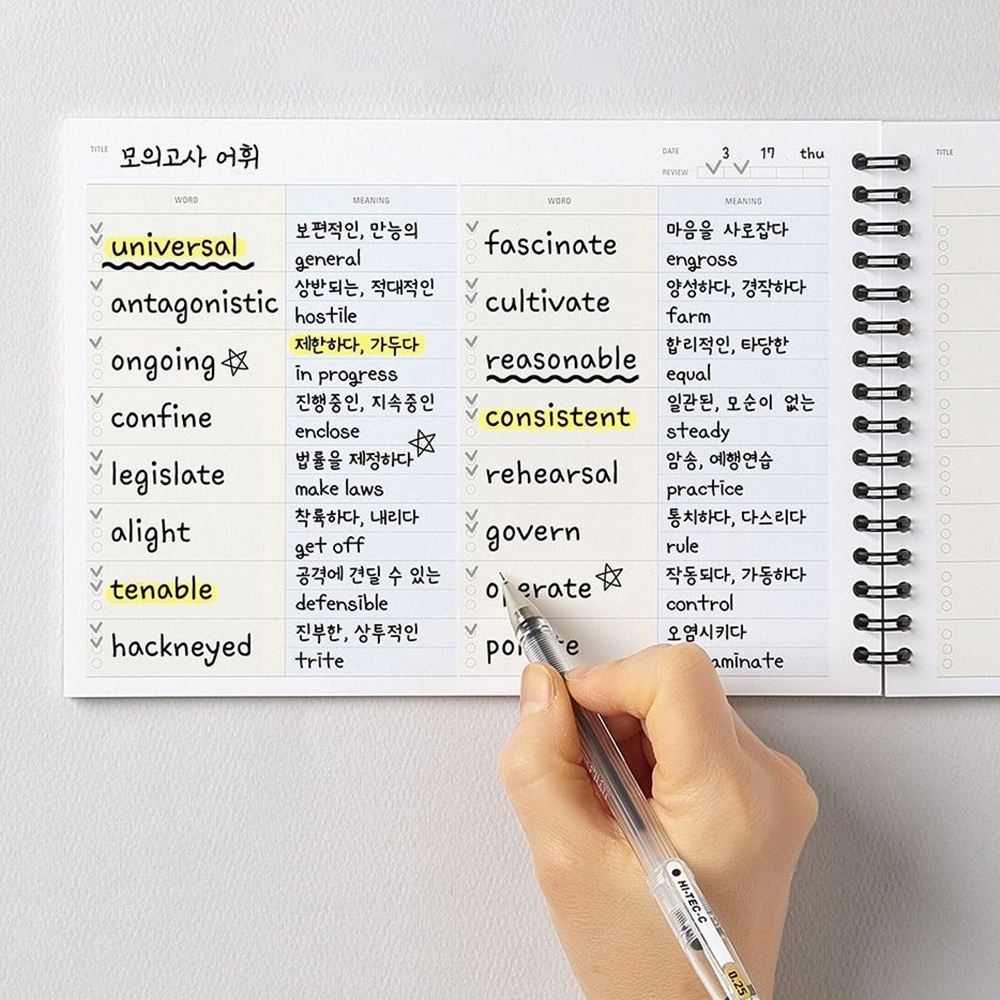 TITLE 모의고사 어휘
DATE 3 17 thu
REVIEW
WORD MEANING WORD MEANING
universal
보편적인, 만능의
general
antagonistic
상반되는, 적대적인
hostile
ongoing
제한하다, 가두다
in progress
confine
진행중인, 지속중인
enclose
legislate
법률을 제정하다
make laws
alight
착륙하다, 내리다
get off
tenable
공격에 견딜 수 있는
defensible
hackneyed
진부한, 상투적인
trite
fascinate
마음을 사로잡다
engross
cultivate
양성하다, 경작하다
farm
reasonable
합리적인, 타당한
equal
consistent
일관된, 모순이 없는
steady
rehearsal
암송, 예행연습
practice
govern
통치하다, 다스리다
rule
operate
작동되다, 가동하다
control
오염시키다
TITLE
HI-TEC-C
0.25